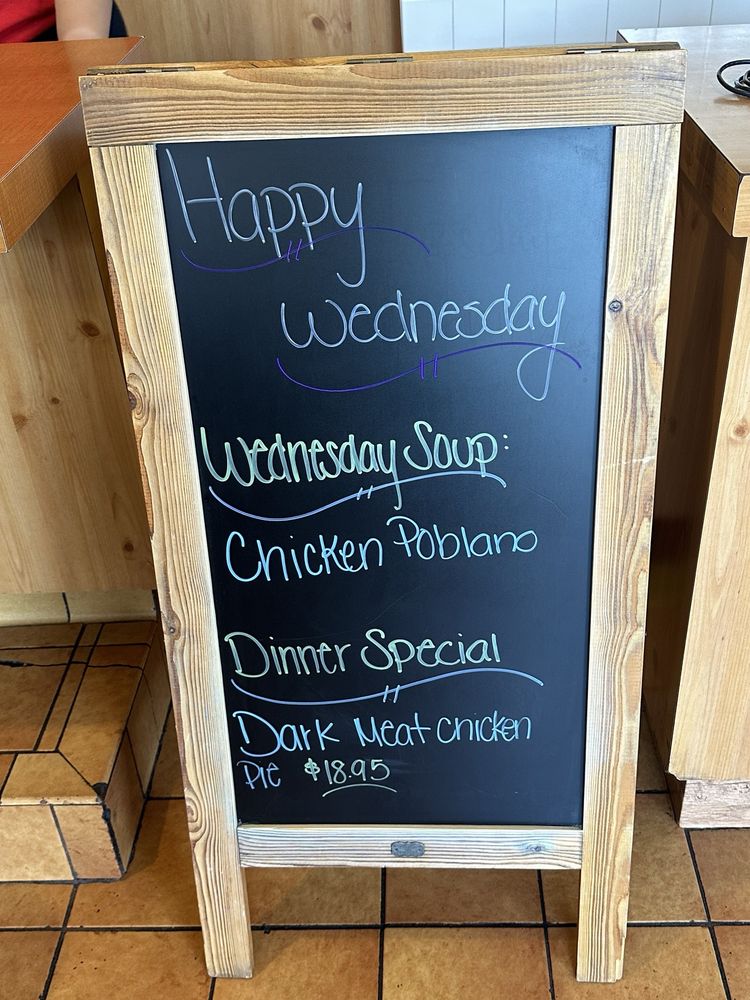 Happy
Wednesday
Wednesday Soup:
Chicken Poblano
Dinner Special
Dark Meat Chicken
Pie $18.95